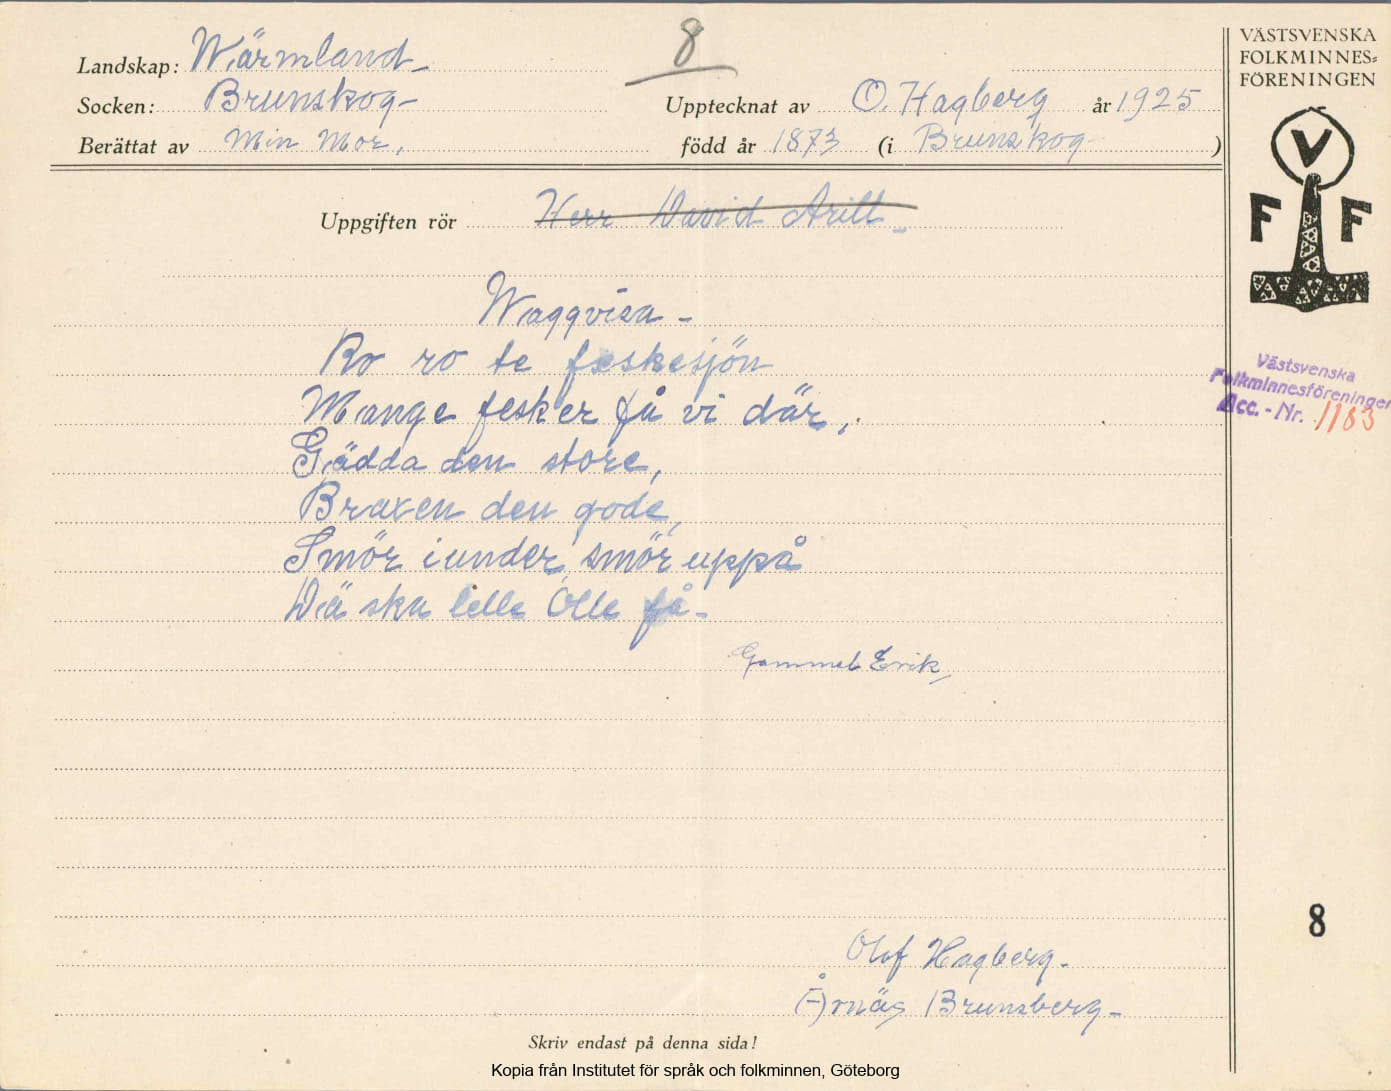 8
Landskap: Wärmland
Socken: Brunskog
Berättat av Min Mor,
Upptecknat av O. Hagberg år 1925
född år 1873 (i Brunskog)
Uppgiften rör Herr David Arill
Waggvisa
Ro ro te feskesjön
Mange fesker få vi där,
Gädda den store,
Braxen den gode,
Smör iunder, smör uppå
Dä ska lelle Olle få
Gammel Erik
Olof Hagberg
Årnäs Brunsberg
Skriv endast på denna sida!
VÄSTSVENSKA
FOLKMINNES=
FÖRENINGEN
V
F F
Västsvenska
Folkminnesföreningen
Acc. - Nr. 1183
8
Kopia från Institutet för språk och folkminnen, Göteborg